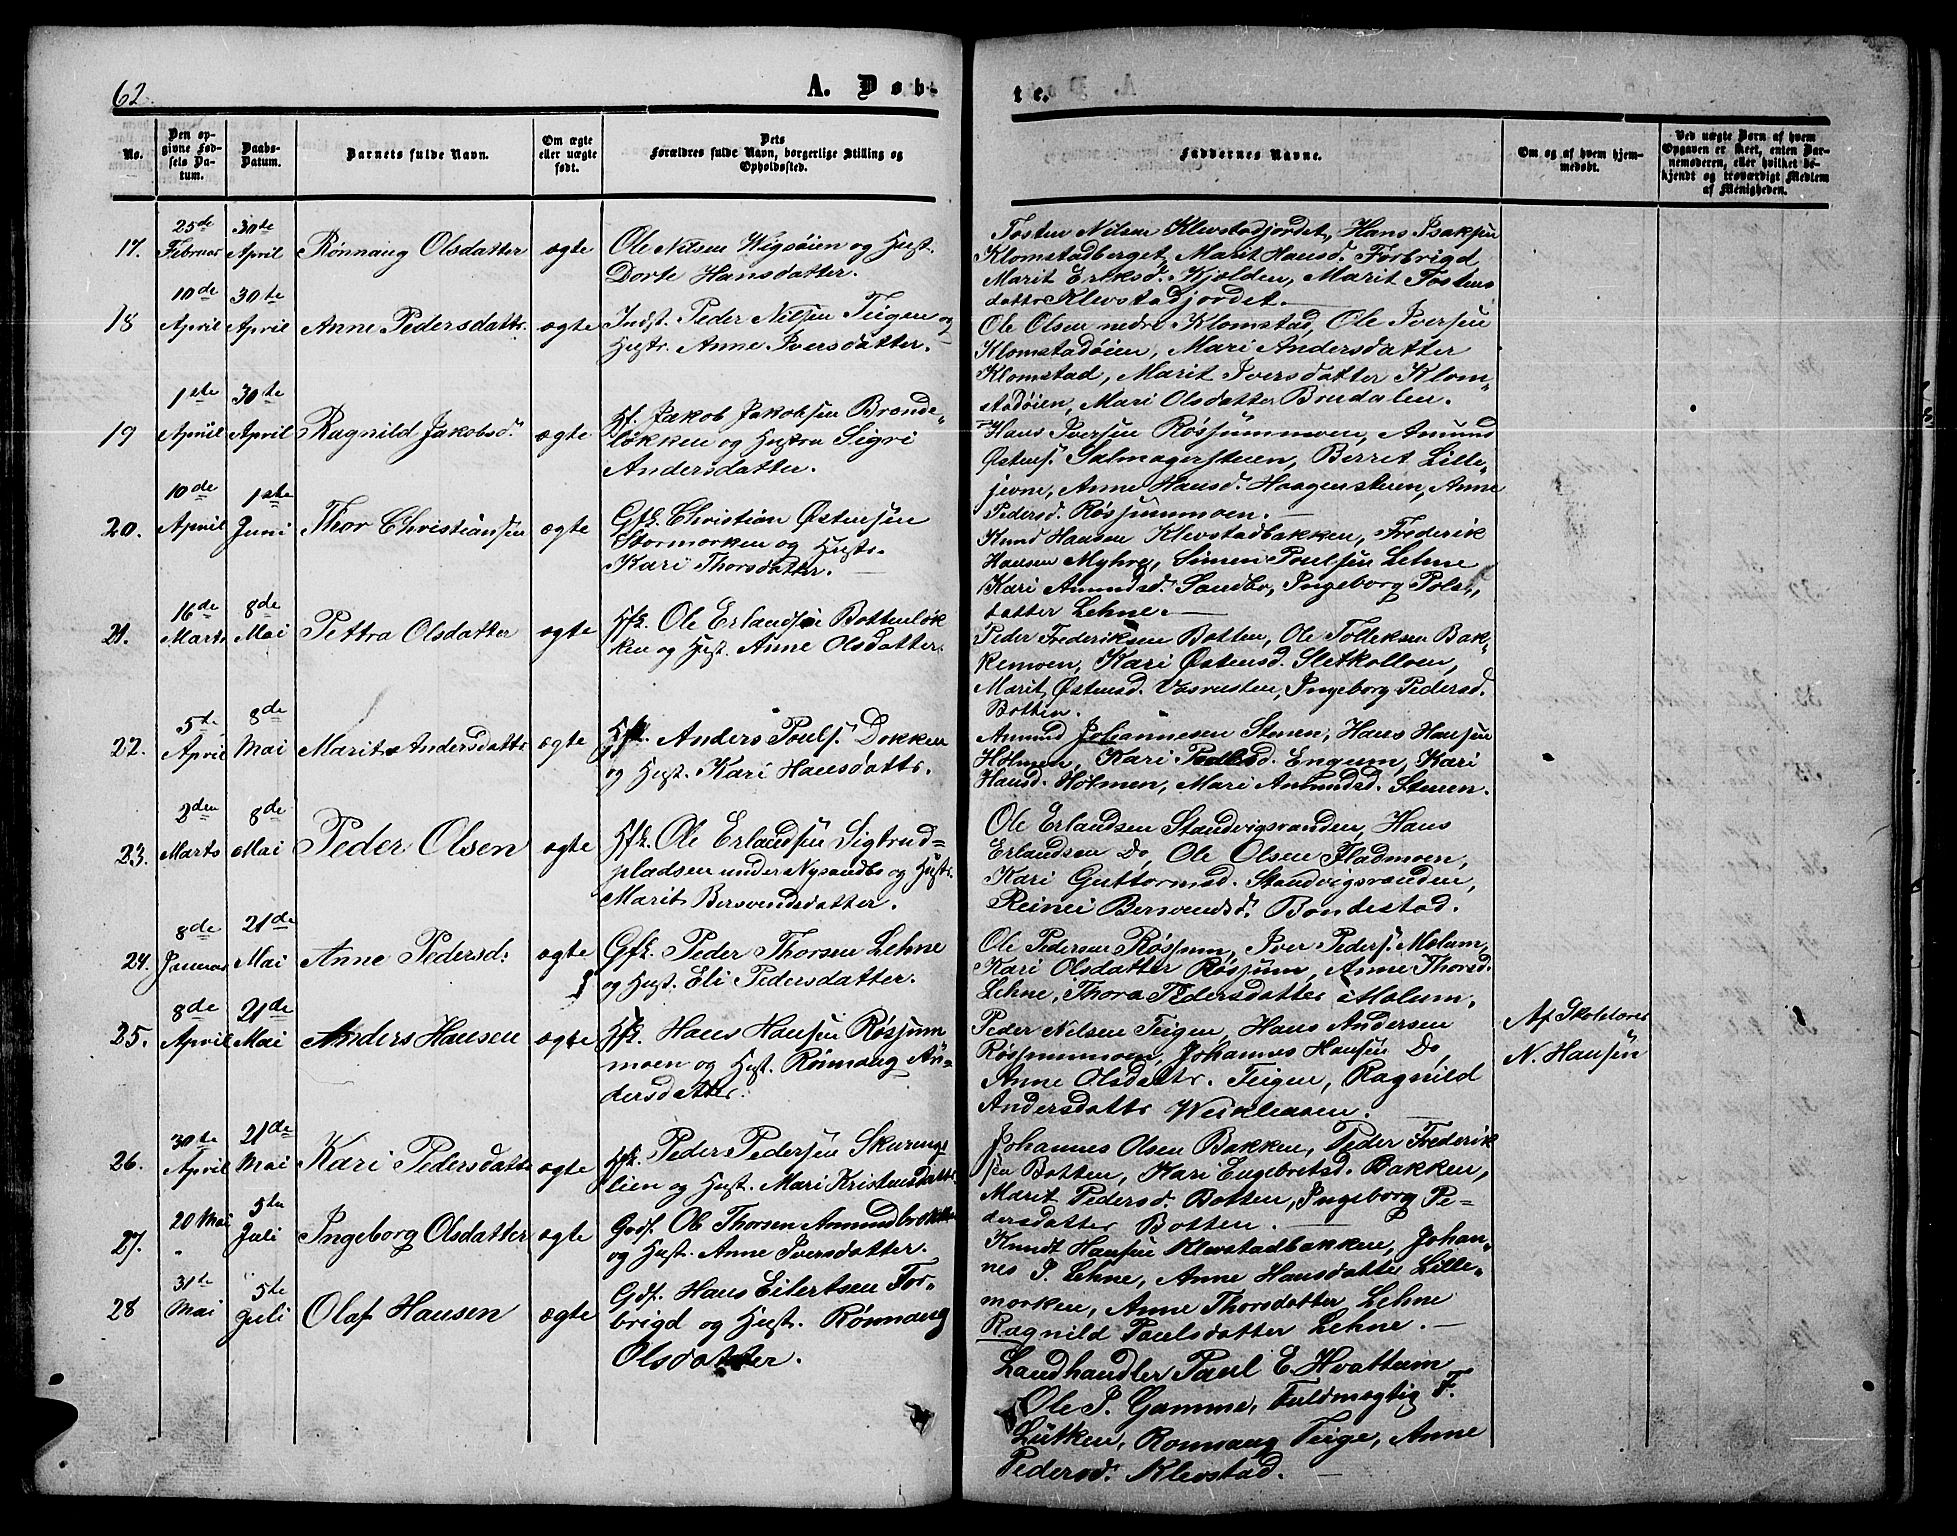 62.
A. Døb-
te.
No.
Den op-
givne Fød-
sels Da-
tum.
Daabs-
Datum.
Barnets fulde Navn.
Om ægte
eller uægte
født.
Dets
Forældres fulde Navn, borgerlige Stilling og
Opholdssted.
Faddernes Navne.
Om og af hvem hjem-
medøbt.
Ved uægte Børn af hvem
Opgaven er skeet, enten Bar-
nemoderen, eller hvilket be-
kjendt og troværdigt Medlem
af Menigheden.
17.
25de
Februar
30te
April
Rønnaug Olsdatter
ægte
Ole Nilsen Wigsøien og Hust.
Dorte Hansdatter.
Tosten Nilsen Klevstadjordet, Hans Isaksen
Klomstadberget, Marit Hansd. Forbrigd
Marit Eriksd. Kjølden, Marit Tostens
datter Klevstadjordet.
18
10de
April
30te
April
Anne Pedersdattr.
ægte
Indst. Peder Nilsen Teigen og
Hustr. Anne Iversdatter.
Ole Olsen nedre Klomstad, Ole Iversen
Klomstadøien, Mari Andersdatter
Klomstad, Marit Iversdatter Klom-
stadøien, Mari Olsdatter Brudalen.
19
1ste
April
30te
April
Ragnild Jakobsd.
ægte
Hf. Jakob Jakobsen Brænde-
løkken og Hustru Sigri
Andersdatter.
Hans Iversen Røsjummoen, Amund
Østens. Salmagersteien, Berret Lille-
jevne, Anne Hansd. Haagensteien, Anne
Pedersd. Røsjummoen.
20.
10de
April
1ste
Juni
Thor Christiansen
ægte
Gfb. Christian Østensen
Stormorken og Hustr.
Kari Thorsdatter.
Knud Hansen Klevstadbakken, Frederik
Hansen Myhre, Simen Poulsen Lehne
Kari Amundsd. Sandbo, Ingeborg Pols-
datter Lehne.
21.
16de
Marts
8de
Mai
Pettra Olsdatter
ægte
Hfb. Ole Erlandsen Bottenløk
ken og Hust. Anne Olsdatter.
Peder Frederiksen Botten, Ole Tolleksen Bak-
kemoen, Kari Østensd. Sletkolloen,
Marit Østensd. Vasrusten, Ingeborg Pedersd.
Botten.
22.
5te
April
8de
Mai
Marit Andersdattr
ægte
Hfb. Anders Pouls. Dokken
og Hust. Kari Hansdattr.
Amund Johannesen Stenen, Hans Hansen
Holmen, Kari Pedersd. Engum, Kari
Hansd. Holmen, Mari Amundsd. Stenen.
23.
2den
Marts
8de
Mai
Peder Olsen
ægte
Hfb. Ole Erlandsen Sigtrud-
pladsen under Nysandbo og Hustr.
Marit Bersvendsdatter.
Ole Erlandsen Standvigsranden, Hans
Erlandsen Do, Ole Olsen Fladmoen,
Kari Guttormsd. Standvigsranden,
Reinei Bersvendsd. Bondestad.
24.
8de
Januar
21de
Mai
Anne Pedersd:
ægte
Gfb. Peder Thorsen Lehne
og Hust. Eli Pedersdatter.
Ole Pedersen Røsjum, Iver Peders. Molum,
Kari Olsdatter Røsjum, Anne Thorsd.
Lehne, Thora Pedersdatter Molum.
25.
8de
April
21de
Mai
Anders Hansen
ægte
Hfb. Hans Hansen Røsjum
moen og Hust. Rønnaug An-
dersdatter.
Peder Nilsen Teigen, Hans Andersen
Røsjummoen, Johannes Hansen Do,
Anne Olsdattr. Teigen, Ragnild
Andersdattr Weikleaasen.
Af Skolelærer
N. Hansen
26.
30te
April
21de
Mai
Kari Pedersdattr
ægte
Hfb. Peder Pedersen Skurengs
lien og Hust. Mari Kristensdattr.
Johannes Olsen Bakken, Peder Frederik
sen Botten, Kari Engebretsd. Bakken,
Marit Pedersd. Botten, Ingeborg Pe-
dersdatter Botten.
27.
20 Mai
"
5te
Juli
Ingeborg Olsdatter
ægte
Gdf. Ole Thorsen Amundbrækken
og Hust. Anne Iversdatter.
Knudt Hansen Klevstadbakken, Johan-
nes P. Lehne, Anne Hansdatter Lille-
morken, Anne Thorsdatter Lehne
Ragnild Paulsdatter Lehne.
28
31te
Mai
5te
Juli
Olaf Hansen
ægte
Gdf. Hans Eilertsen For-
brigd og Hustr. Rønnaug
Olsdatter.
Landhandler Paul E. Hvattum
Ole P. Gamme, Fuldmægtig F.
Lütken, Rønnaug Teige, Anne
Pedersd. Klevstad.